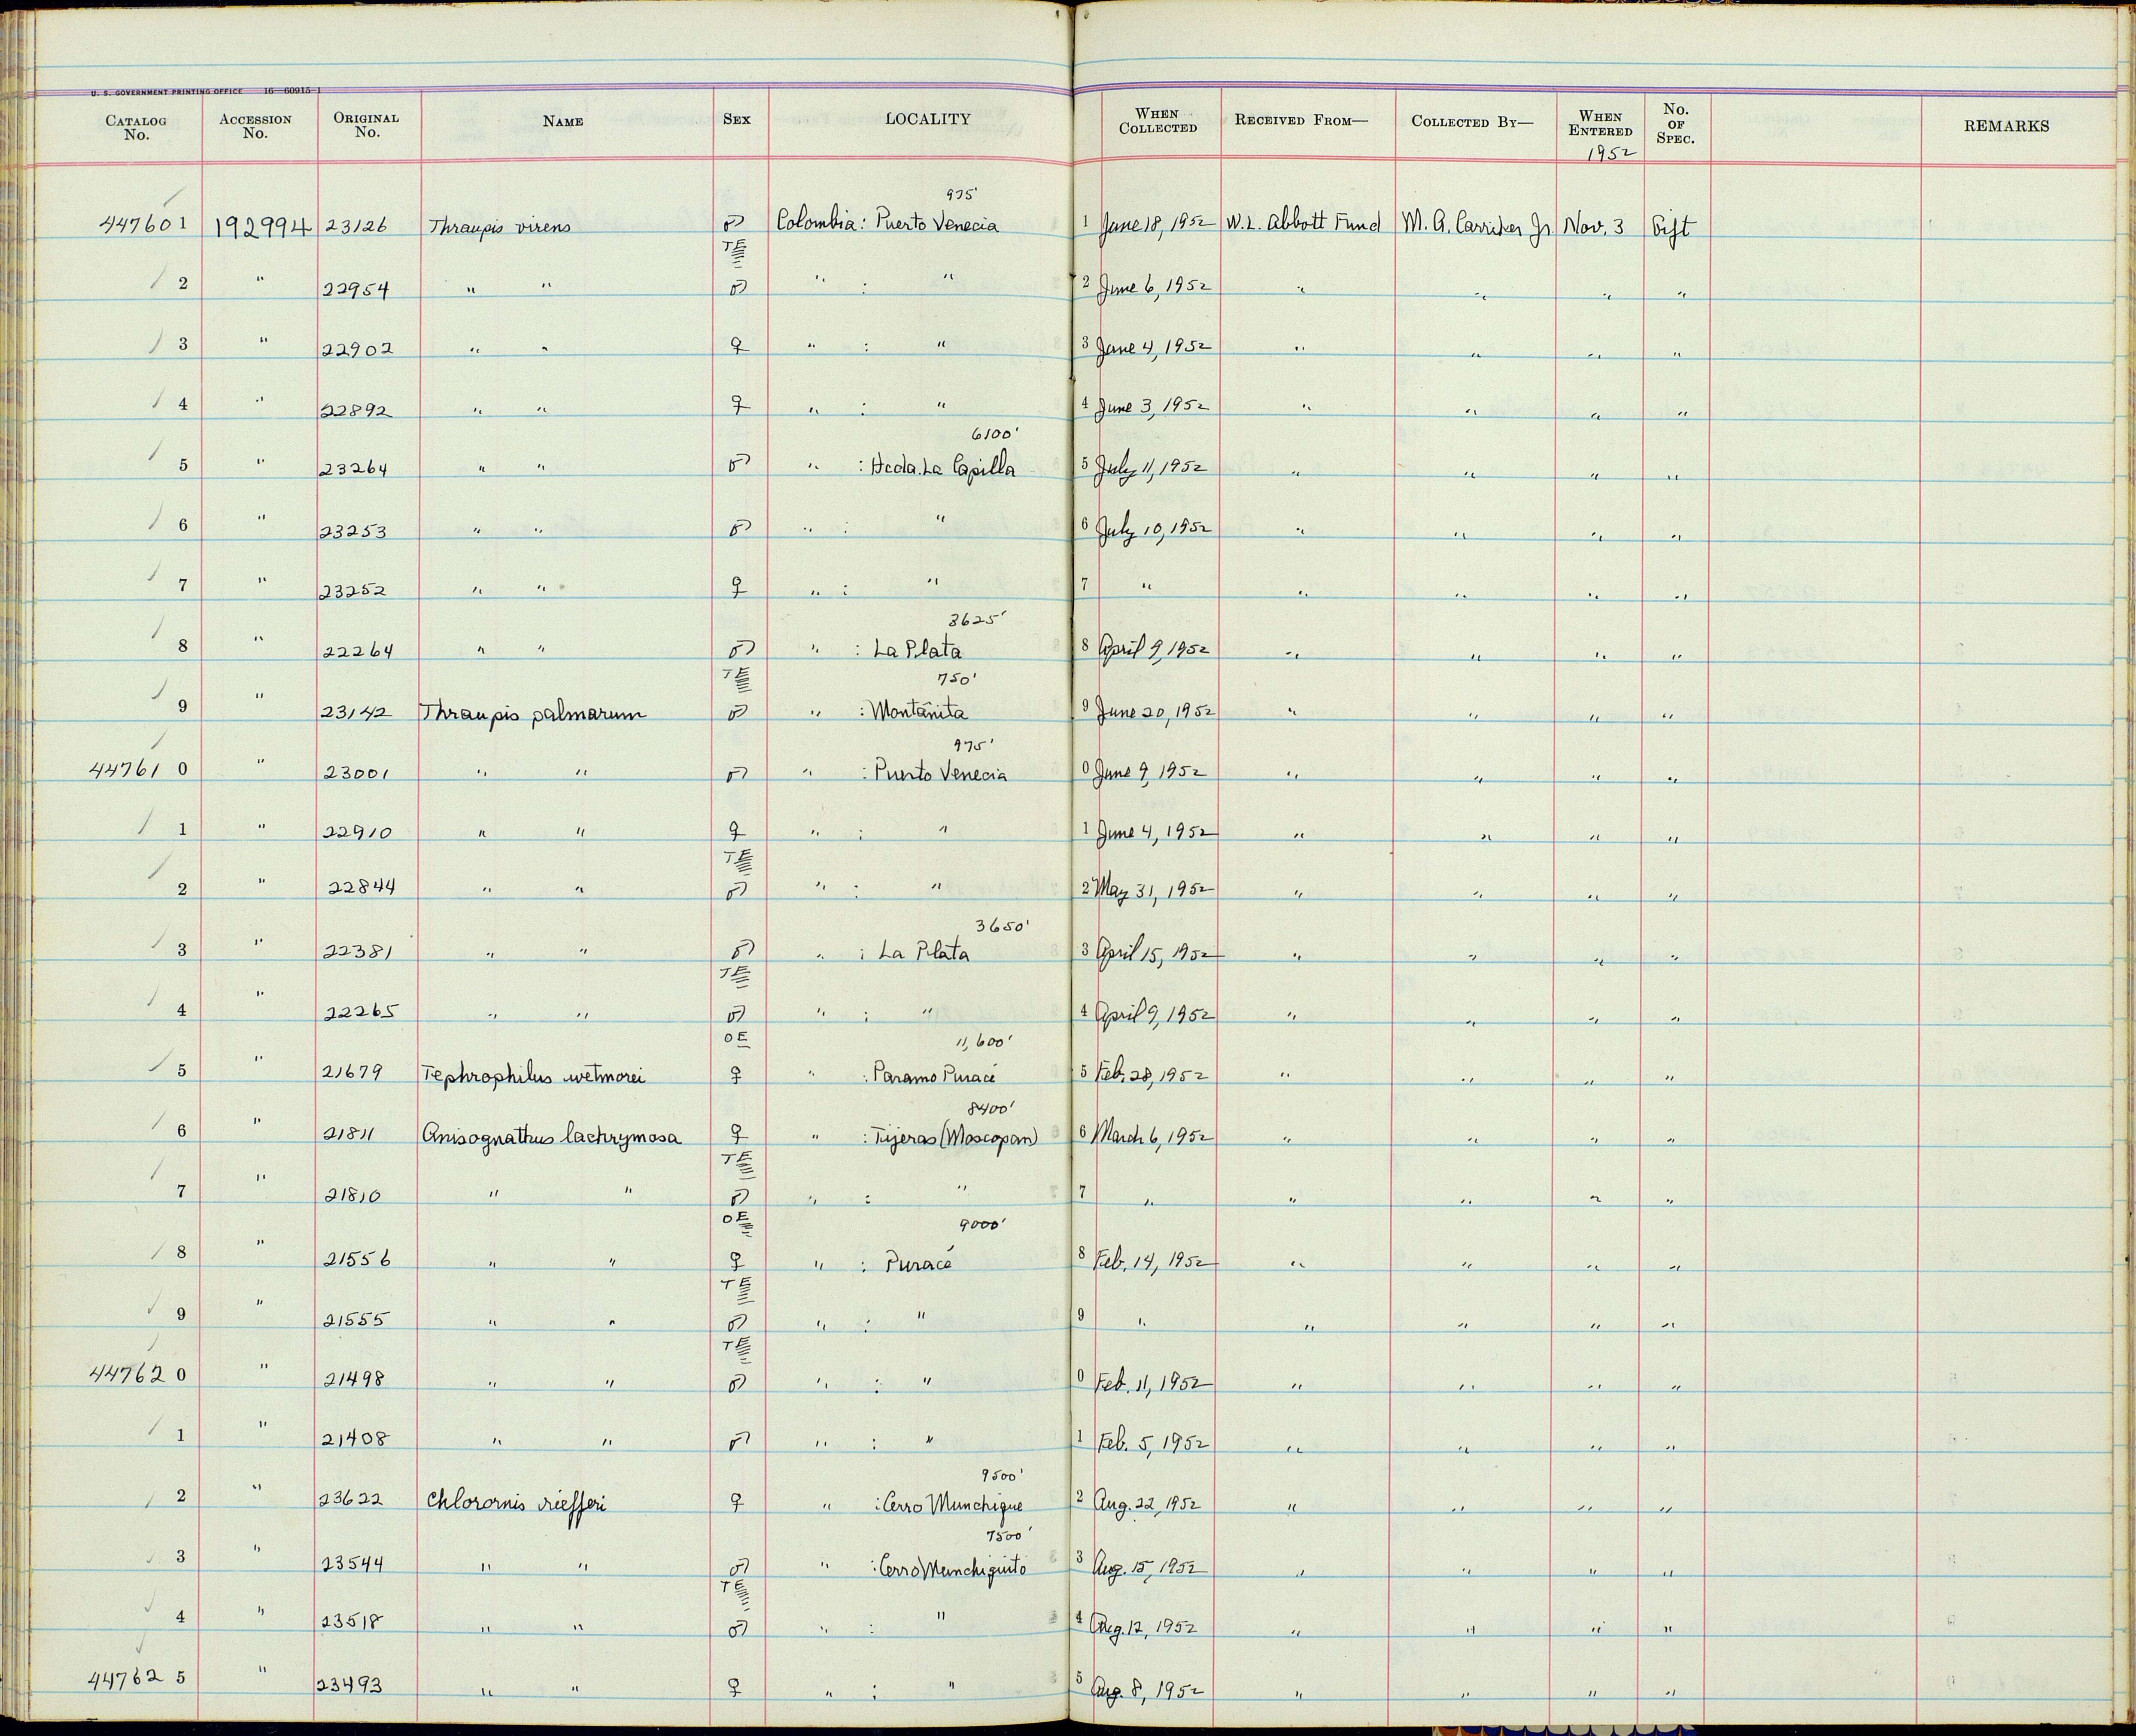 U. S. GOVERNMENT PRINTING OFFICE 16—60915-1
CATALOG No. ACCESSION No. ORIGINAL No. NAME SEX LOCALITY WHEN COLLECTED RECEIVED FROM— COLLECTED BY— WHEN ENTERED No. OF SPEC. REMARKS
1952
975'
447601 192994 23126 Thraupis virens ♂ Colombia: Puerto Venecia 1 June 18, 1952 W.L. Abbott Fund M. A. Carriker Jr. Nov. 3 Gift
TE
2 " 22954 " " ♂ " : " 2 June 6, 1952 " " " "
3 " 22902 " " ♀ " : " 3 June 4, 1952 " " " "
4 " 22892 " " ♀ " : " 4 June 3, 1952 " " " "
6100'
5 " 23264 " " ♂ " : Hcda. La Capilla 5 July 11, 1952 " " " "
6 " 23253 " " ♂ " : " 6 July 10, 1952 " " " "
7 " 23252 " " ♀ " : " 7 " " " " "
3625'
8 " 22264 " " ♂ " : La Plata 8 April 9, 1952 " " " "
TE 750'
9 " 23142 Thraupis palmarum ♂ " : Montañita 9 June 20, 1952 " " " "
975'
447610 " 23001 " " ♂ " : Puerto Venecia 0 June 9, 1952 " " " "
1 " 22910 " " ♀ " : " 1 June 4, 1952 " " " "
TE
2 " 22844 " " ♂ " : " 2 May 31, 1952 " " " "
3650'
3 " 22381 " " ♂ " : La Plata 3 April 15, 1952 " " " "
TE
4 " 22265 " " ♂ " : " 4 April 9, 1952 " " " "
OE 11,600'
5 " 21679 Tephrophilus wetmorei ♀ " : Paramo Puracé 5 Feb. 28, 1952 " " " "
8400'
6 " 21811 Anisognathus lachrymosa ♀ " : Tijeras (Moscopan) 6 March 6, 1952 " " " "
TE
7 " 21810 " " ♂ " : " 7 " " " " "
OE 9000'
8 " 21556 " " ♀ " : Puracé 8 Feb. 14, 1952 " " " "
TE
9 " 21555 " " ♂ " : " 9 " " " " "
TE
447620 " 21498 " " ♂ " : " 0 Feb. 11, 1952 " " " "
1 " 21408 " " ♂ " : " 1 Feb. 5, 1952 " " " "
9500'
2 " 23622 Chlorornis riefferi ♀ " : Cerro Munchique 2 Aug. 22, 1952 " " " "
7500'
3 " 23544 " " ♂ " : Cerro Munchiquito 3 Aug. 15, 1952 " " " "
TE
4 " 23518 " " ♂ " : " 4 Aug. 12, 1952 " " " "
447625 " 23493 " " ♀ " : " 5 Aug. 8, 1952 " " " "